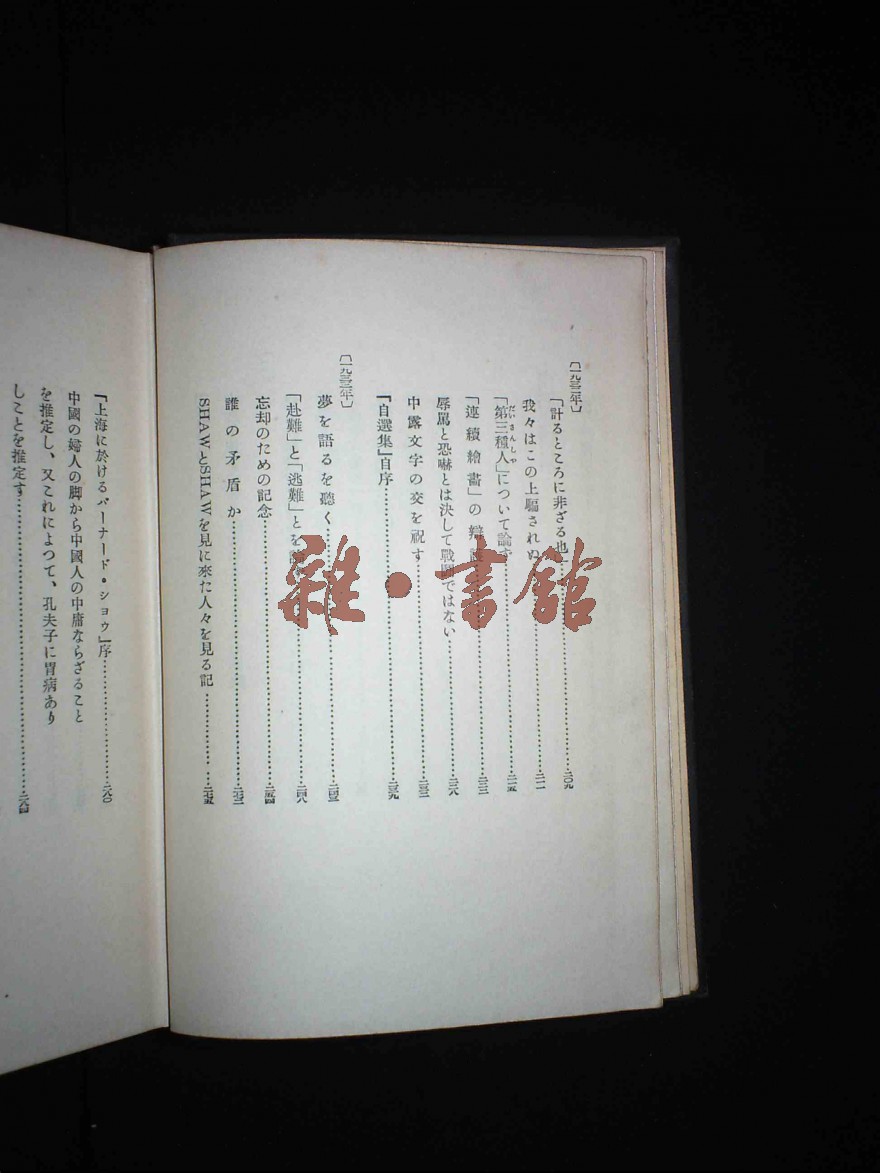 〔一九三二年〕
「計るところに非ざる也」……二〇九
我々はこの上騙されぬ……二一一
「第三種人」について論ず……二一五
だいさんしゆ
「連續繪畫」の辯護……二二三
辱罵と恐嚇とは決して戰鬪ではない……二二八
中露文字の交を祝す……二三二
『自選集』自序……二三九
〔一九三三年〕
夢を語るを聽く……二四三
「赴難」と「逃難」とを……二四八
忘却のための記念……二五四
誰の矛盾か……二七二
SHAWとSHAWを見に來た人々を見る記……二七五
『上海に於けるバーナード・ショウ』序……二八〇
中國の婦人の脚から中國人の中庸ならざること
を推定し、又これによつて、孔夫子に胃病あり
しことを推定す……二八四
雜·書館